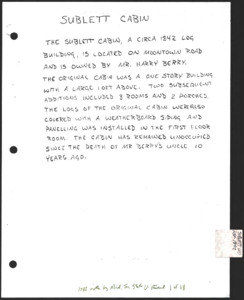 SUBLETT CABIN
THE SUBLETT CABIN, A CIRCA 1842 LOG
BUILDING, IS LOCATED ON MOONTOWN ROAD
AND IS OWNED BY MR. HARRY BERRY.
THE ORIGINAL CABIN WAS A ONE STORY BUILDING
WITH A LARGE LOFT ABOVE. TWO SUBSEQUENT
ADDITIONS INCLUDED 3 ROOMS AND 2 PORCHES.
THE LOGS OF THE ORIGINAL CABIN WERE
COVERED WITH A WEATHERBOARD SIDING AND
PANELLING WAS INSTALLED IN THE FIRST FLOOR
ROOM. THE CABIN HAS REMAINED UNOCCUPIED
SINCE THE DEATH OF MR BERRY'S UNCLE 10
YEARS AGO.
1 of 18